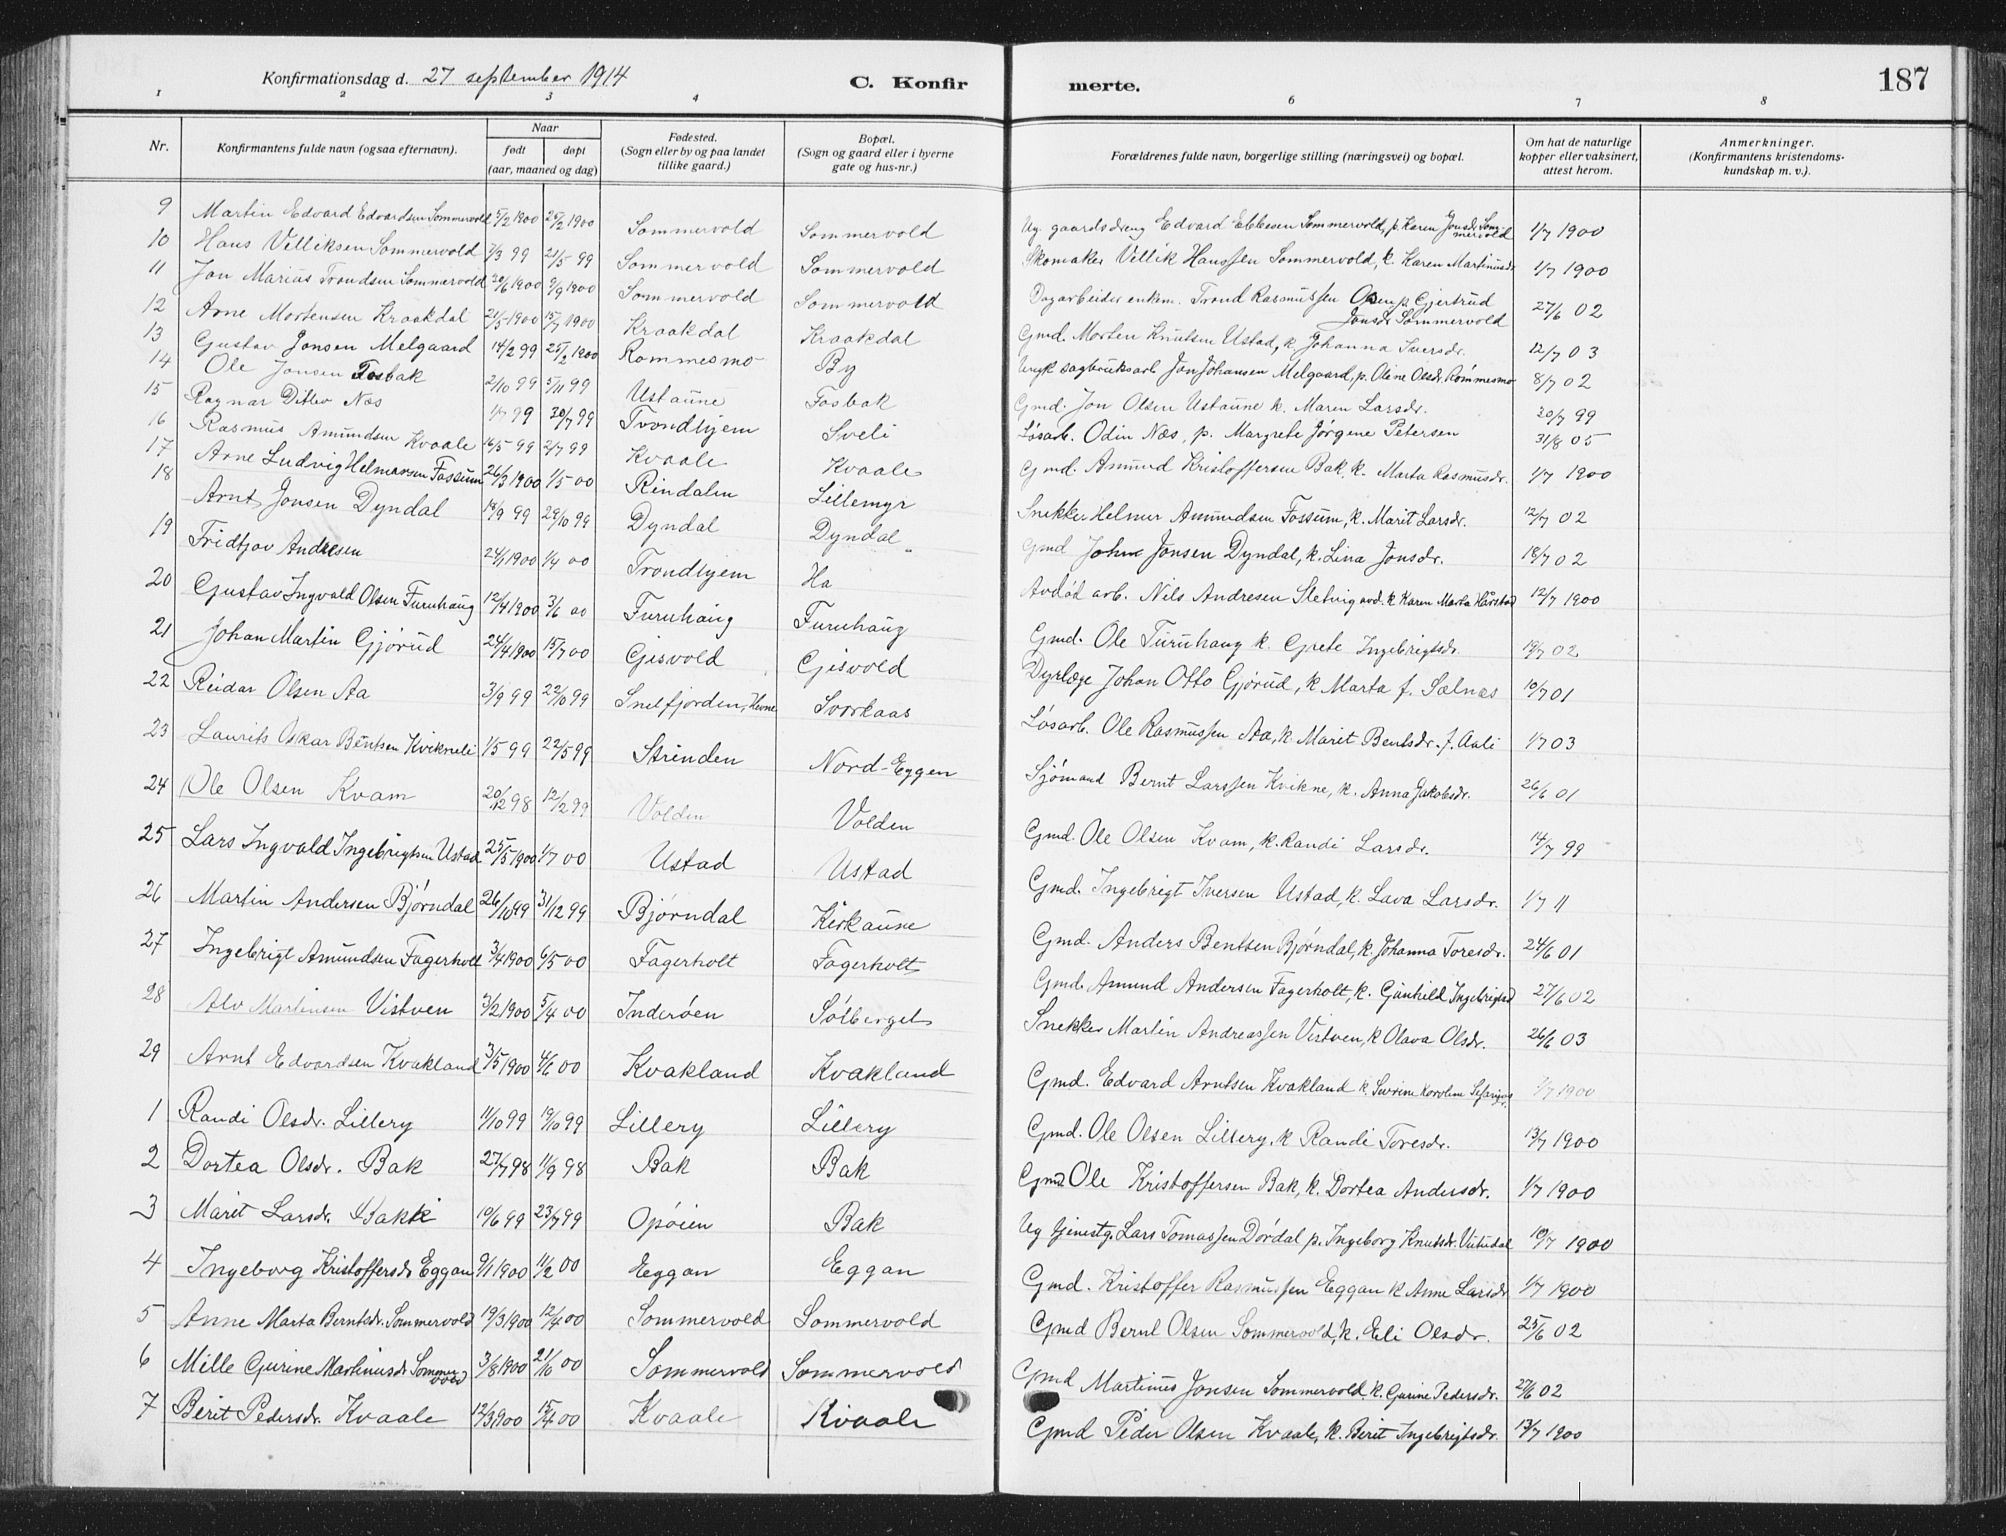 Konfirmationsdag d. 27 september 1914 C. Konfir merte. 187
1 2 3 4 6 7 8
Nr. Konfirmantens fulde navn (ogsaa efternavn). Naar født døpt (aar, maaned og dag) Fødested. (Sogn eller by og paa landet tillike gaard.) Bopæl. (Sogn og gaard eller i byerne gate og hus-nr.) Forældrenes fulde navn, borgerlige stilling (næringsvei) og bopæl. Om hat de naturlige kopper eller vaksinert, attest herom. Anmerkninger. (Konfirmantens kristendoms- kundskap m. v.).
9 Martin Edvard Edvardsen Sommervold 5/2 1900 25/2 1900 Sommervold Sommervold Ug. gaardsdreng Edvard Ebbesen Sommervold, p. Karen Jonsdr. Sommervold 1/7 1900
10 Hans Villiksen Sommervold 7/3 99 21/5 99 Sommervold Sommervold Skomaker Villik Hanssen Sommervold, k. Karen Martinusdr 1/7 1900
11 Jon Marius Trondsen Sommervold 20/6 1900 9/9 1900 Sommervold Sommervold Dagarbeider enkem. Trond Rasmussen Opøien p. Gjertrud Jonsdr Sommervold 27/6 02
12 Arne Mortensen Kraakdal 21/5 1900 15/7 1900 Kraakdal Kraakdal Gmd. Morten Knutsen Ustad, k Johanna Iversdr. 12/7 03
13 Gustav Jonsen Melgaard 14/2 99 25/2 1900 Rommesmo By Ugk sagbruksarb Jon Johansen Melgaard, p. Oline Olsdr. Rommesmo 8/7 02
14 Ole Jonsen Fosbak 2/10 99 5/11 99 Ustaune Fosbak Gmd. Jon Olsen Ustaune k. Maren Larsdr. 20/7 99
15 Ragnar Ditlev Næs 1/7 99 30/7 99 Trondhjem Sveli Løsarb. Odin Næs, p. Margrete Jørgene Petersen 31/8 05
16 Rasmus Amundsen Kvaale 16/5 99 2/7 99 Kvaale Kvaale Gmd. Amund Kristoffersen Bak, k. Marta Rasmusdr. 1/7 1900
17 Arne Ludvig Helmersen Fossum 26/3 1900 1/5 00 Rindalen Lillemyr Snekker Helmer Amundsen Fossum, k. Marit Larsdr. 12/7 02
18 Arnt Jonsen Dyndal 18/9 99 29/10 99 Dyndal Dyndal Gmd John Jonsen Dyndal, k. Lina Jonsdr. 18/7 02
19 Fridtjov Andresen 24/1 1900 1/4 00 Trondhjem Ha Avdød arb. Nils Andresen Sletvig avd. k Karen Marta Hårstad 12/7 1900
20 Gustav Ingvald Olsen Furuhaug 12/4 1900 3/6 00 Furuhaug Furuhaug Gmd. Ole Furuhaug k. Grete Ingebrigtsdr. 19/7 02
21 Johan Martin Gjørud 24/4 1900 15/7 00 Gisvold Gisvold Dyrlæge Johan Otto Gjørud, k Marta f. Sælnæs 10/7 01
22 Reidar Olsen Aa 3/9 99 22/10 99 Snelfjorden, Hevne Svorkaas Løsarb. Ole Rasmussen Aa, k. Marit Bentsdr. f. Aali 1/7 03
23 Laurits Oskar Berntsen Kvikneli 1/5 99 22/5 99 Strinden Nord-Eggen Sjømand Bernt Larssen Kvikne, k. Anna Jakobsdr. 26/6 01
24 Ole Olsen Kvam 20/12 98 12/2 99 Volden Volden Gmd. Ole Olsen Kvam, k. Randi Larsdr. 14/7 99
25 Lars Ingvald Ingebrigtsen Ustad 25/5 1900 1/7 00 Ustad Ustad Gmd. Ingebrigt Iversen Ustad, k. Lava Larsdr. 1/7 11
26 Martin Andersen Bjørndal 26/10 99 31/12 99 Bjørndal Kirkaune Gmd. Anders Bentsen Bjørndal, k. Johanna Toresdr. 24/6 01
27 Ingebrigt Amundsen Fagerholt 3/4 1900 6/5 00 Fagerholt Fagerholt Gmd. Amund Andersen Fagerholt, k. Gunhild Ingebrigtsd 27/6 02
28 Alv Martinsen Vistven 3/2 1900 5/4 00 Inderøen Solberget Snekker Martin Andreassen Vistven, k Olava Olsdr. 26/6 03
29 Arnt Edvardsen Kvakland 3/5 1900 4/6 00 Kvakland Kvakland Gmd. Edvard Arntsen Kvakland k. Sivrine Karoline 1/7 1900
1 Randi Olsdr. Lillery 11/10 99 19/10 99 Lillery Lillery Gmd. Ole Olsen Lillery, k Randi Toresdr. 13/7 1900
2 Dortea Olsdr. Bak 27/7 98 11/9 98 Bak Bak Gmd Ole Kristoffersen Bak, k. Dortea Andersdr. 1/7 1900
3 Marit Larsdr. Bakk 10/6 99 23/7 99 Opøien Bak Ug tjenestg. Lars Tomassen Dørdal p. Ingeborg Knutsdr. 10/7 1900
4 Ingeborg Kristoffersdr Eggan 9/1 1900 11/2 00 Eggan Eggan Gmd. Kristoffer Rasmussen Eggan k Anne Larsdr 1/7 1900
5 Anne Marta Berntsdr. Sommervold 19/3 1900 12/4 00 Sommervold Sommervold Gmd Bernt Olsen Sommervold, k. Eli Olsdr. 25/6 02
6 Mille Gurine Martinusdr Sommervold 3/8 1900 21/10 00 Sommervold Sommervold Gmd Martinus Jonsen Sommervold, k. Gurine Pedersdr. 27/6 02
7 Berit Pedersdr. Kvaale 12/3 1900 15/4 00 Kvaale Kvaale Gmd Peder Olsen Kvaale, k. Berit Ingebrigtsdr. 13/7 1900